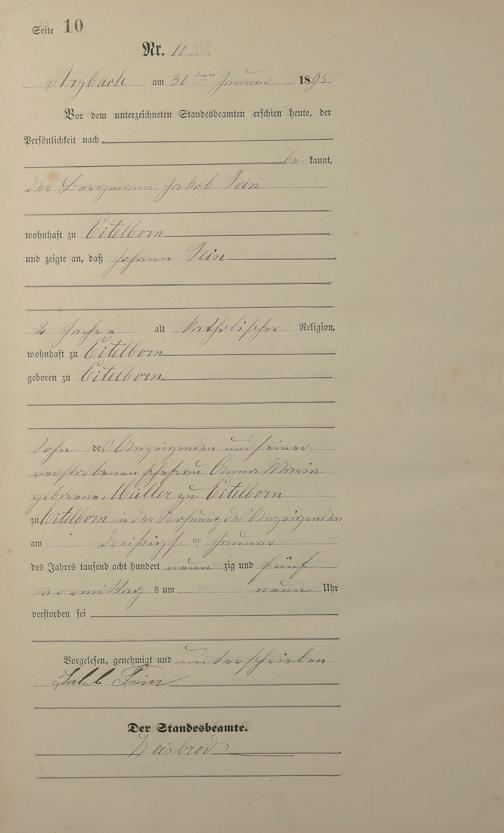 Seite 10
Nr. 10
Arzbach am 30ten Januar 1895
Vor dem unterzeichneten Standesbeamten erschien heute, der
Persönlichkeit nach
be kannt,
der Bergmann Jakob Fein
wohnhaft zu Eitelborn
und zeigte an, daß Johann Fein
2 Jahre alt katholischer Religion,
wohnhaft zu Eitelborn
geboren zu Eitelborn
Sohn des Anzeigenden und seiner
verstorbenen Ehefrau Anna Maria
geborene Müller zu Eitelborn
zu Eitelborn in der Wohnung des Anzeigenden
am dreißigsten Januar
des Jahres tausend acht hundert neun zig und fünf
vormittags um neun Uhr
verstorben sei
Vorgelesen, genehmigt und unterschrieben
Jakob Fein
Der Standesbeamte.
Weisbrod